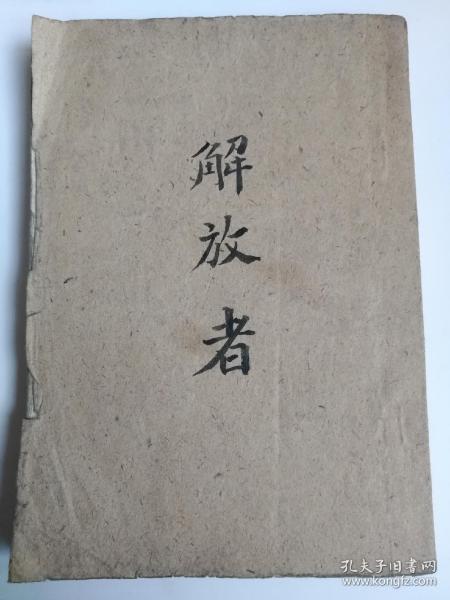 解放者
孔夫子旧书网
www.kongfz.com